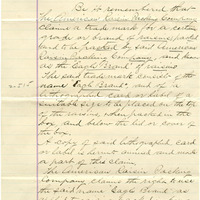 Be it remembered that
The American Raisin Packing Company
claims a trade mark for a certain
grade or brand of raisins packed
and to be packed by said American
Raisin Packing Company, and known
as the Eagle Brand of raisins
The said trade mark consists of the
name "Eagle Brand" and of a
lithographed card or label of a
suitable size to be placed on the top
of the raisins, when packed in the
box and below the lid or cover of
the box.
A copy of said lithographed card
or label is hereunto annexed and made
a part of this claim.
The American Raisin Packing
Company claims the right to use
the said name "Eagle Brand" as